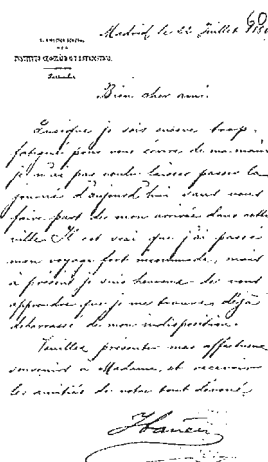 60
Madrid, le 22 Juillet
Bien cher ami.
Quoique je sois encore trop
fatigué pour vous écrire de ma main
je n'ai pas voulu laisser passer la
journée d'aujourd'hui sans vous
faire part de mon arrivée dans cette
ville. Il est vrai que j'ai passé
mon voyage fort incommodé, mais
à présent je suis heureux de vous
apprendre que je me trouve déjà
débarrassé de mon indisposition.
Veuillez présenter mes affectueux
souvenirs à Madame, et recevoir
les amitiés de votre tout dévoué.